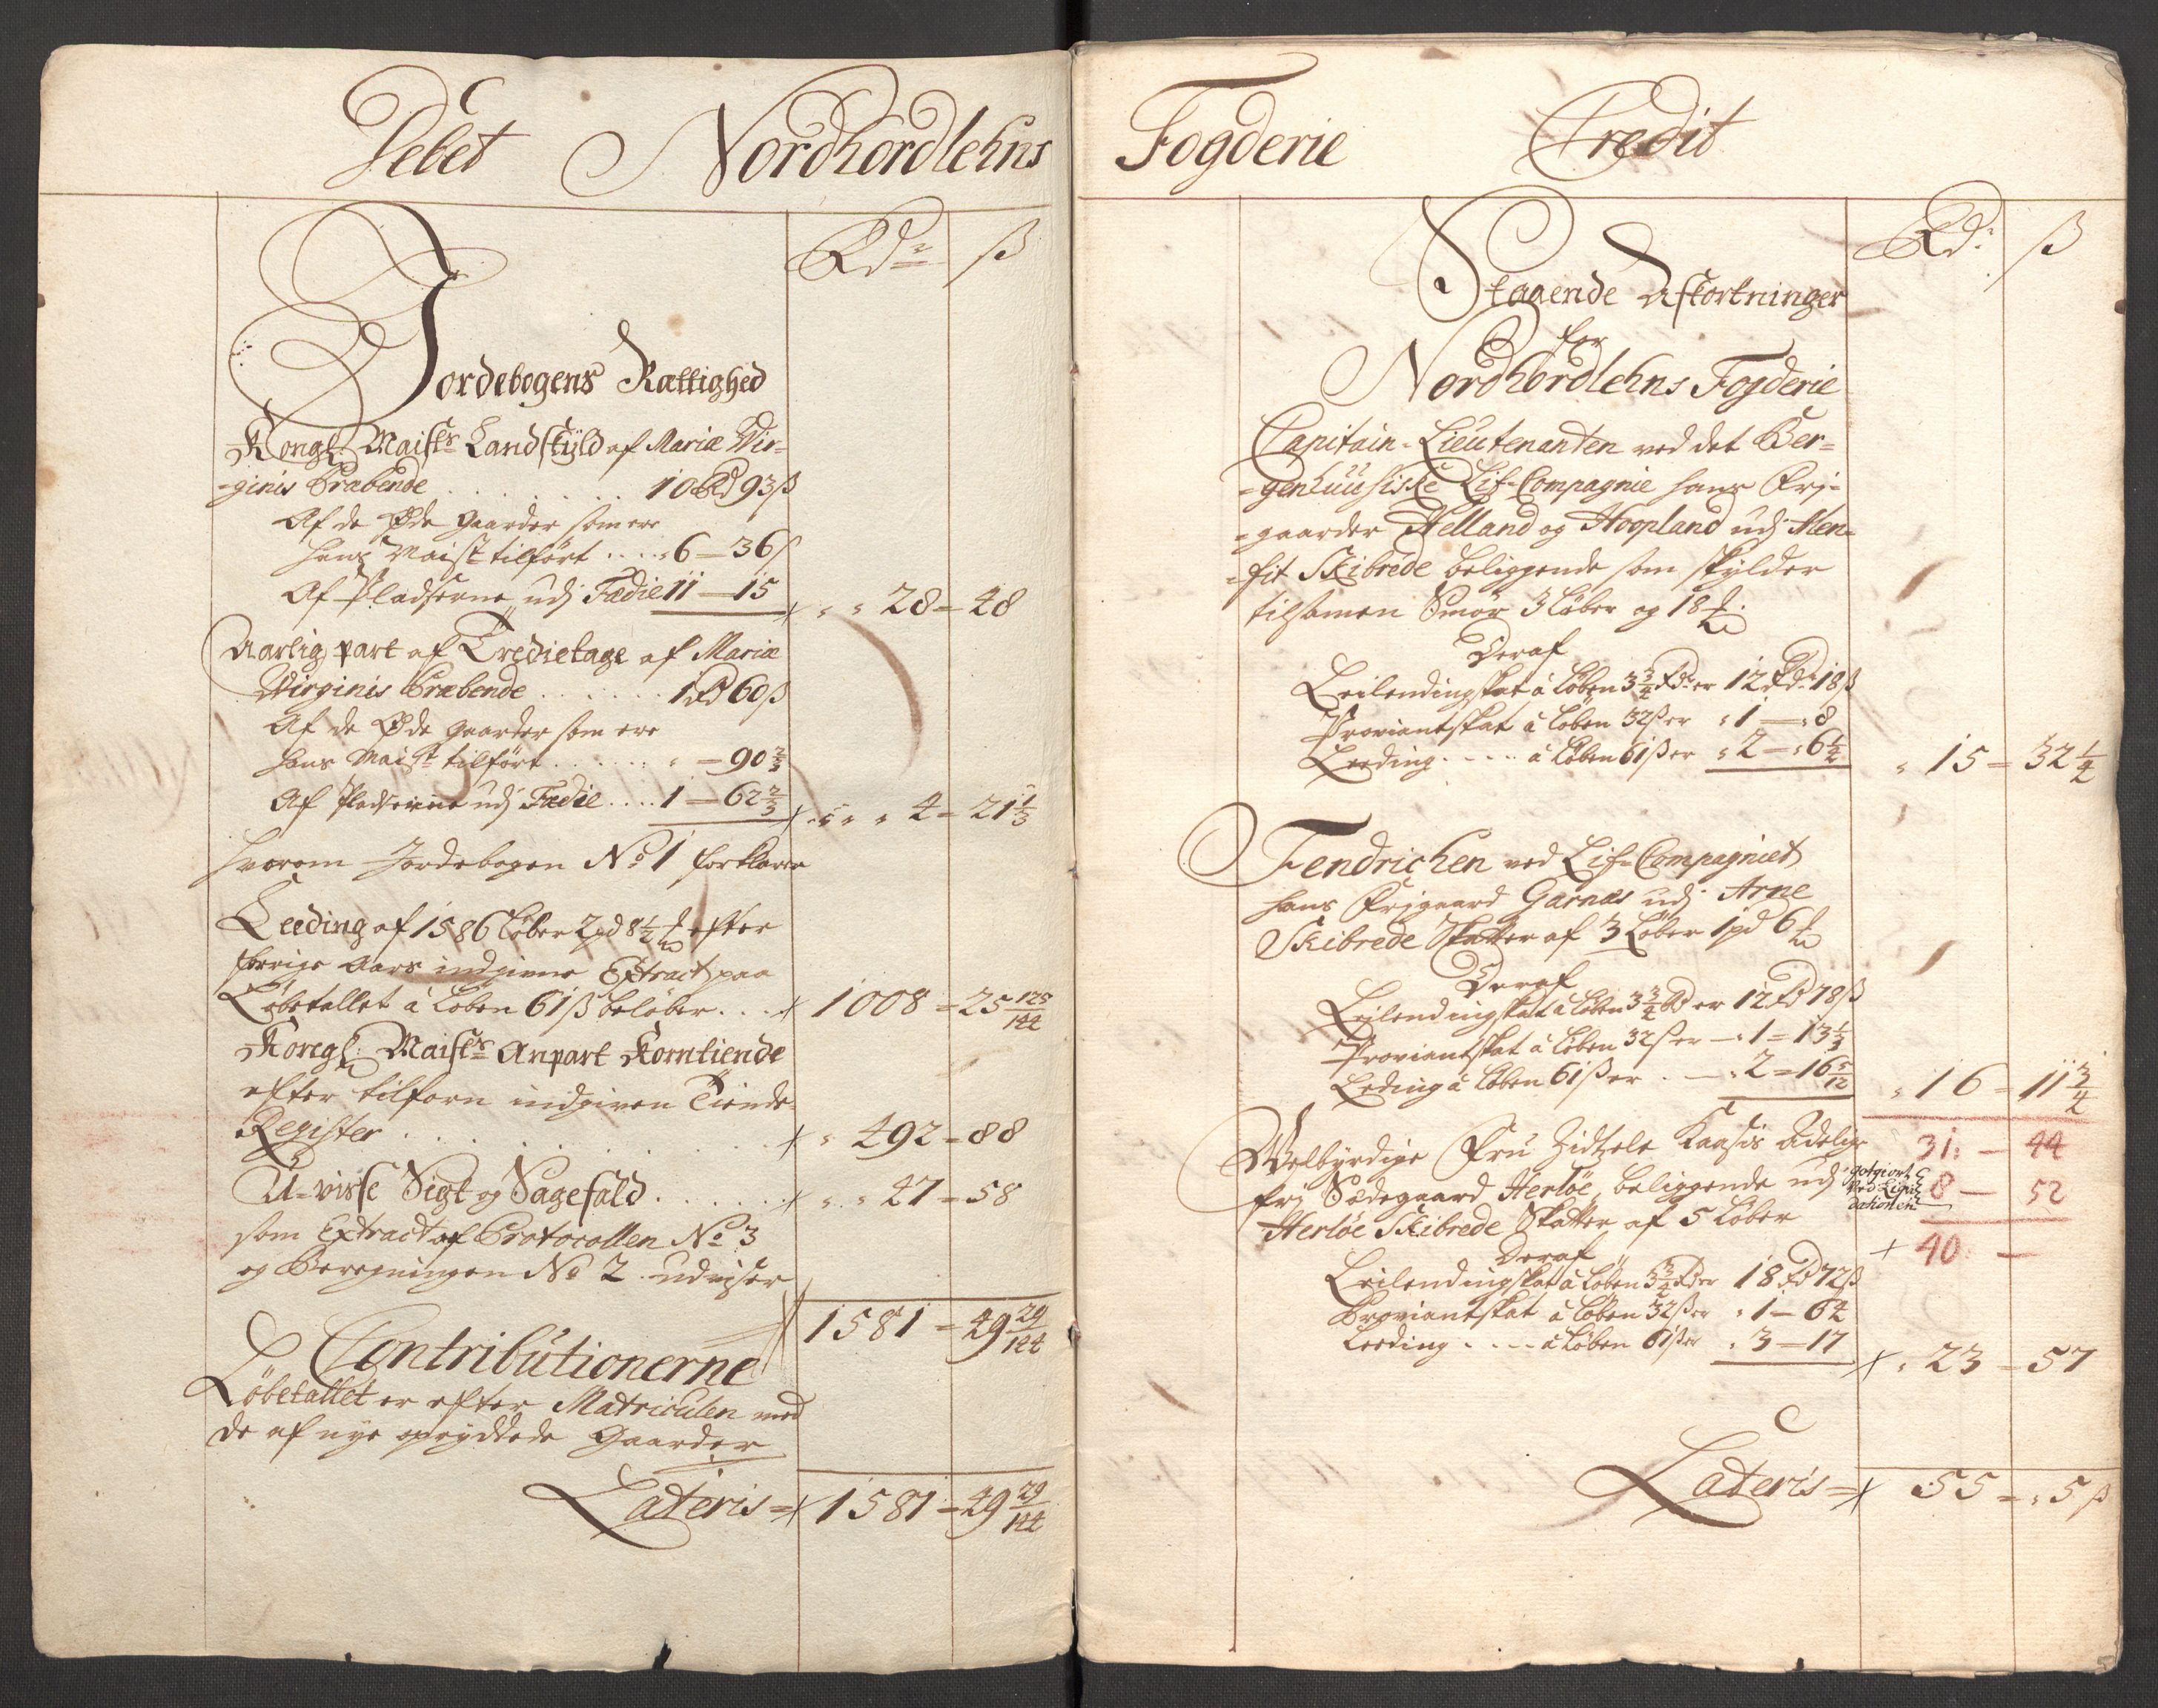 Debet Nordhordlehns
Rdr ß
Jordebogens Rættighed
Kongl: Maists Landskÿld af Mariæ Vir-
-ginis Præbende . . . . . . . 10 Rd 93 ß
Af de Øde gaarder som ere
hans Maist tilført . . . . 6 — 36 ß
Af Pladserne udj Fædie 11 — 15
28 = 48
Aarlig part af Tredietage af Mariæ
Virginis Præbende . . . . . . 1 Rd 60 ß
Af de Øde gaarder som ere
hans Maist tilført . . . . . . — 90 2/3
Af Pladserne udj Fædie . . . . 1 — 62 2/3
4 = 21 1/3
hvorom Jordebogen No 1 forklarer
Leeding af 1586 Løber 2 pd 8 1/2 ℔ efter
forrige Aars indgivne Extract paa
Løbetallet á Løben 61 ß beløber . . . 1008 = 25 125/144
Kongl: Maists Anpart Korntiende
efter tilforn indgiven Tiende-
Register . . . . . . . . 492 = 88
U-visse Sigt og Sagefald . . . . . . 47 = 58
som Extract af Protocollen No 3
og Beregningen No 2 udviser
1581 = 49 29/144
Contributionerne
Løbetallet er efter Matriculen med
de af nye opryddede Gaarder
Lateris = 1581 = 49 29/144
Fogderie Credit
Rd: ß
Staaende Afkortninger
for
Nordhordlehns Fogderie
Capitain-Lieutenanten ved det Ber-
-genhuusiske Lif-Compagnie hans Frj-
-gaarder Helland og Hoopland udj Men-
-fit Skibrede beliggende som skylder
tilsamen Smør 3 Løber og 18 ℔.
Deraf
Leilendingskat á Løben 3 3/4 Rdr er 12 Rdr 18 ß
Proviantskat á Løben 32 ß er 1 — 8
Leeding . . . . á Løben 61 ß er 2 — 6 1/4
15 = 32 1/4
Fendrichen ved Lif-Compagniet
hans Frjgaard Garnæs udj Arne
Skibrede Skatter af 3 Løber 1 pd 6 ℔
Deraf
Leilendingskat á Løben 3 3/4 Rd er 12 Rd 78 ß
Proviantskat á Løben 32 ß er — 1 = 13 1/3
Leding á Løben 61 ß er . — 2 = 16 5/12
16 = 11 3/4
31: — 44
Welbyrdige Fru Zidtzele Kaasis Adelige
fri Sædegaard Herløe, beliggende udj
godgiort
ved Liqvi
dationen
8 — 52
Herløe Skibrede Skatter af 5 Løber
40 —
Deraf
Leilendingskat á Løben 3 3/4 Rd er 18 Rd 72 ß
Proviantskat á Løben 32 ß er 1 — 64
Leeding . . . . á Løben 61 ß er 3 — 17
23 = 57
Lateris = 55 = 5 ß